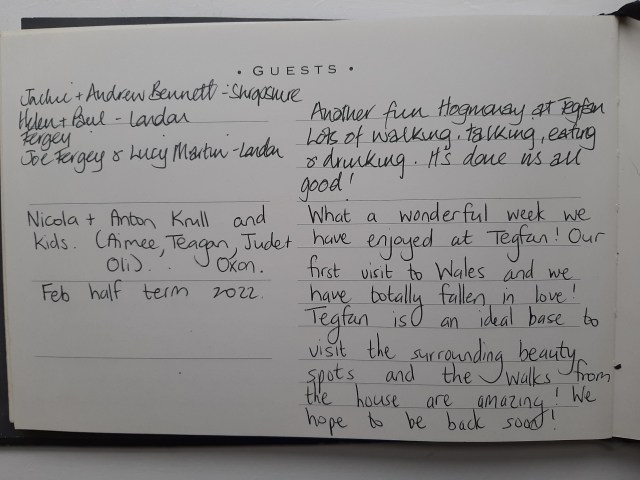 • GUESTS •
Jackie + Andrew Bennett - Shropshire
Helen + Paul - London
Fergey
Joe Fergey & Lucy Martin - London
Another fun Hogmanay at Tegfan
Lots of walking, talking, eating
& drinking. It's done us all
good!
Nicola + Anton Krull and
kids. (Aimee, Teagan, Jude +
Oli). Oxon.
Feb half term 2022.
What a wonderful week we
have enjoyed at Tegfan! Our
first visit to Wales and we
have totally fallen in love!
Tegfan is an ideal base to
visit the surrounding beauty
spots and the walks from
the house are amazing! We
hope to be back soon!